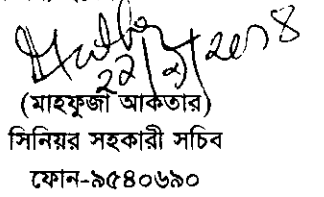 ২২/১/২০১৪
(মাহফুজা আকতার)
সিনিয়র সহকারী সচিব
ফোন-৯৫৪০৬৯০